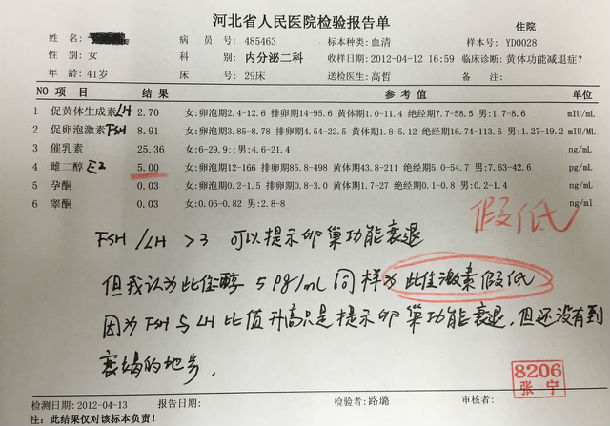 河北省人民医院检验报告单
住院
姓 名: 病 员 号: 485463 标本种类: 血清 样本号: YD0028
性 别: 女 科 别: 内分泌二科 收样日期: 2012-04-12 16:59 临床诊断: 黄体功能减退症?
年 龄: 41岁 床 号: 29床 送检医生: 高哲 备 注:
NO 项 目 结 果 参 考 值 单位
1 促黄体生成素 LH 2.70 女:卵泡期2.4-12.6 排卵期14-95.6 黄体期1.0-11.4 绝经期7.7-58.5 男:1.7-8.6 mIU/mL
2 促卵泡激素 FSH 8.91 女:卵泡期3.85-8.78 排卵期4.54-22.5 黄体期1.8-5.12 绝经期16.74-113.5 男:1.27-19.2 mIU/ML
3 催乳素 25.36 女:6-29.9::男:4.6-21.4 ng/mL
4 雌二醇 E2 5.00 女:卵泡期12-166 排卵期85.8-498 黄体期43.8-211 绝经期5.0-54.7 男:7.63-42.6 pg/mL
5 孕酮 0.03 女:卵泡期0.2-1.5 排卵期0.8-3.0 黄体期1.7-27 绝经期0.1-0.8 男:0.2-1.4 ng/mL
6 睾酮 0.03 女:0.06-0.82 男:2.8-8 ng/ml
假低
FSH/LH >3 可以提示卵巢功能衰退
但我认为此佳醇 5 pg/mL 同样为此佳激素假低
因为FSH与LH比值升高只是提示卵巢功能衰退,但还没有到
衰竭的地步.
8206
张 宁
检测日期: 2012-04-13 报告日期: 检验者: 路璐 审核者:
注: 此结果仅对该标本负责!